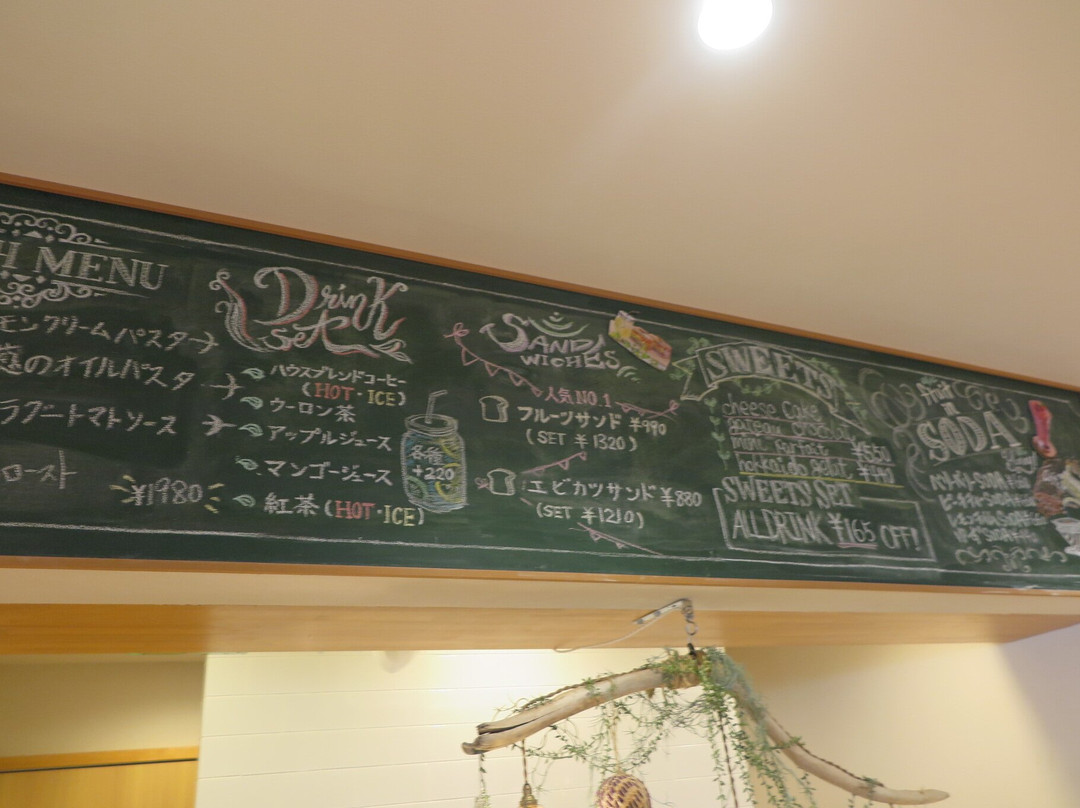 H MENU
モンクリームパスタ
のオイルパスタ
ラグートマトソース
ロースト
¥1980
Drink
set
ハウスブレンドコーヒー
(HOT・ICE)
ウーロン茶
アップルジュース
マンゴージュース
紅茶(HOT・ICE)
各種
+220
SAND
WICHES
人気NO.1
フルーツサンド ¥990
(SET ¥1320)
エビカツサンド ¥880
(SET ¥1210)
SWEETS
cheese cake
gateau chocolat
¥550
¥440
SWEETS SET
ALL DRINK ¥165 OFF!
fruit
in
SODA